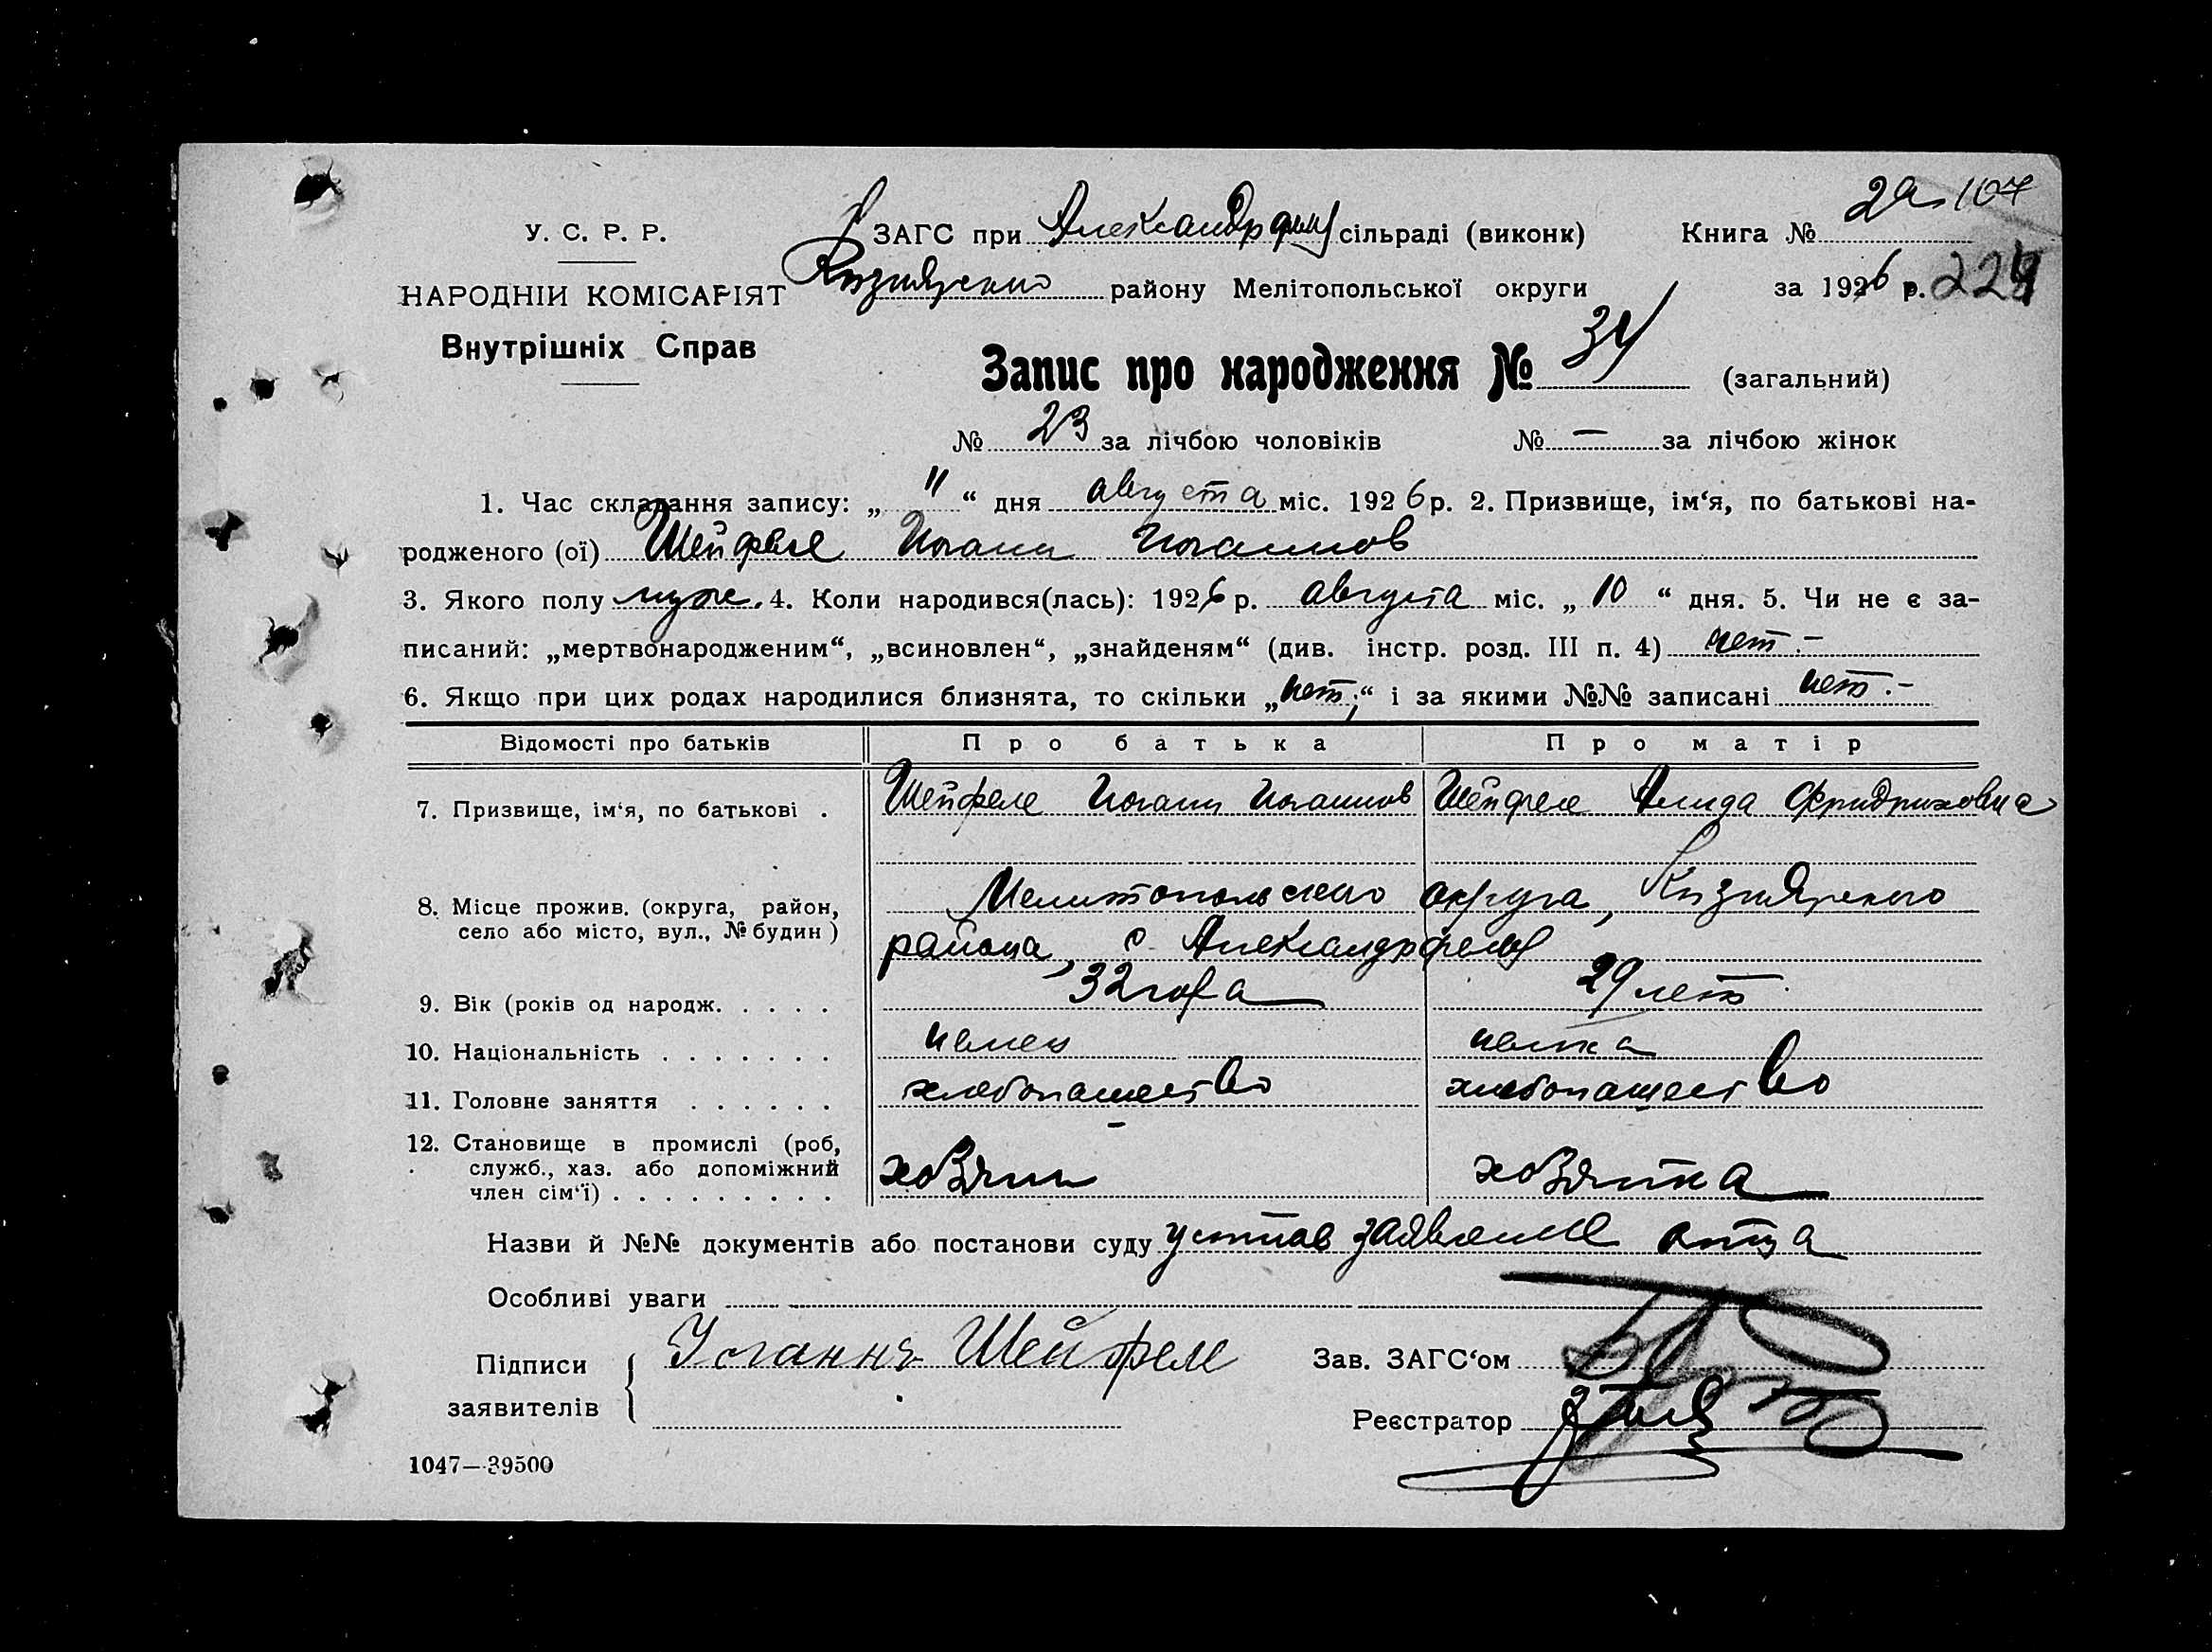 2а 107
У. С. Р. Р. ЗАГС при Александрфельд сільраді (виконк) Книга №
НАРОДНІИ КОМІСАРІЯТ Кизиярского району Мелітопольської округи за 1926 р. 224
Внутрішніх Справ
Запис про народження № 34 (загальний)
№ 23 за лічбою чоловіків № — за лічбою жінок
1. Час складання запису: „ 11 “ дня августа міс. 1926 р. 2. Призвище, ім‘я, по батькові на-
родженого (ої) Шейфеле Иоганн Иоганнов
3. Якого полу муж. 4. Коли народився(лась): 1926 р. августа міс. „ 10 “ дня. 5. Чи не є за-
писаний: „мертвонародженим“, „всиновлен“, „знайденям“ (див. інстр. розд. III п. 4) нет.-
6. Якщо при цих родах народилися близнята, то скільки „нет;“ і за якими №№ записані нет.-
Відомості про батьків Про батька Про матір
7. Призвище, ім‘я, по батькові . Шейфеле Иоганн Иоганнов Шейфеле Фридриховна
8. Місце прожив. (округа, район, Мелитопольского округа, Кизиярского
село або місто, вул., № будин) района, с. Александрфельд
9. Вік (років од народж. . . . . 32 года 29 лет
10. Національність . . . . . . . немец немка
11. Головне заняття . . . . . . хлебопашество хлебопашество
12. Становище в промислі (роб,
служб., хаз. або допоміжний хозяин хозяйка
член сім‘ї) . . . . . . . . .
Назви й №№ документів або постанови суду заявление отца
Особливі уваги
Підписи Иоганнъ Шейфеле Зав. ЗАГС‘ом
заявителів Реєстратор
1047—39500